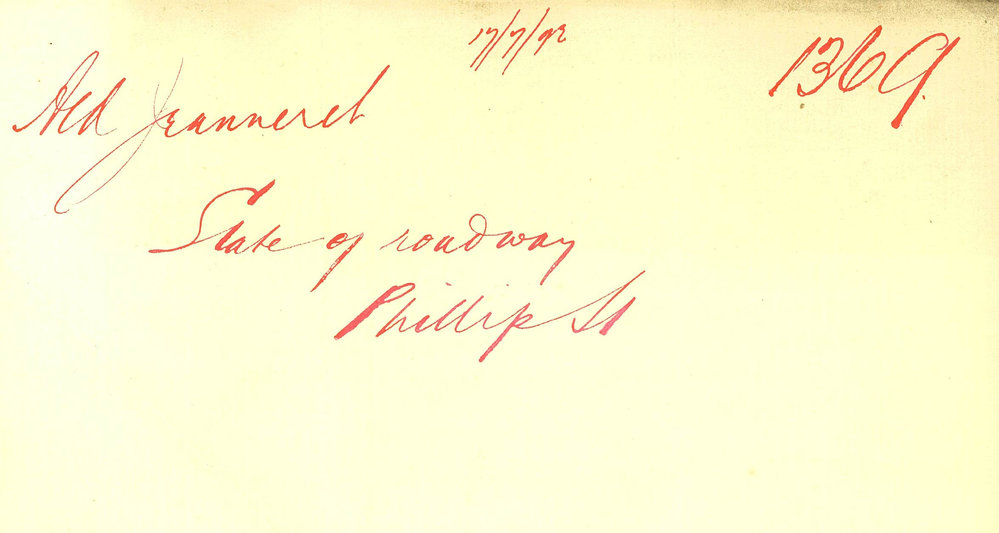 17/7/92
1369.
Ald Jeanneret
State of roadway
Phillip St